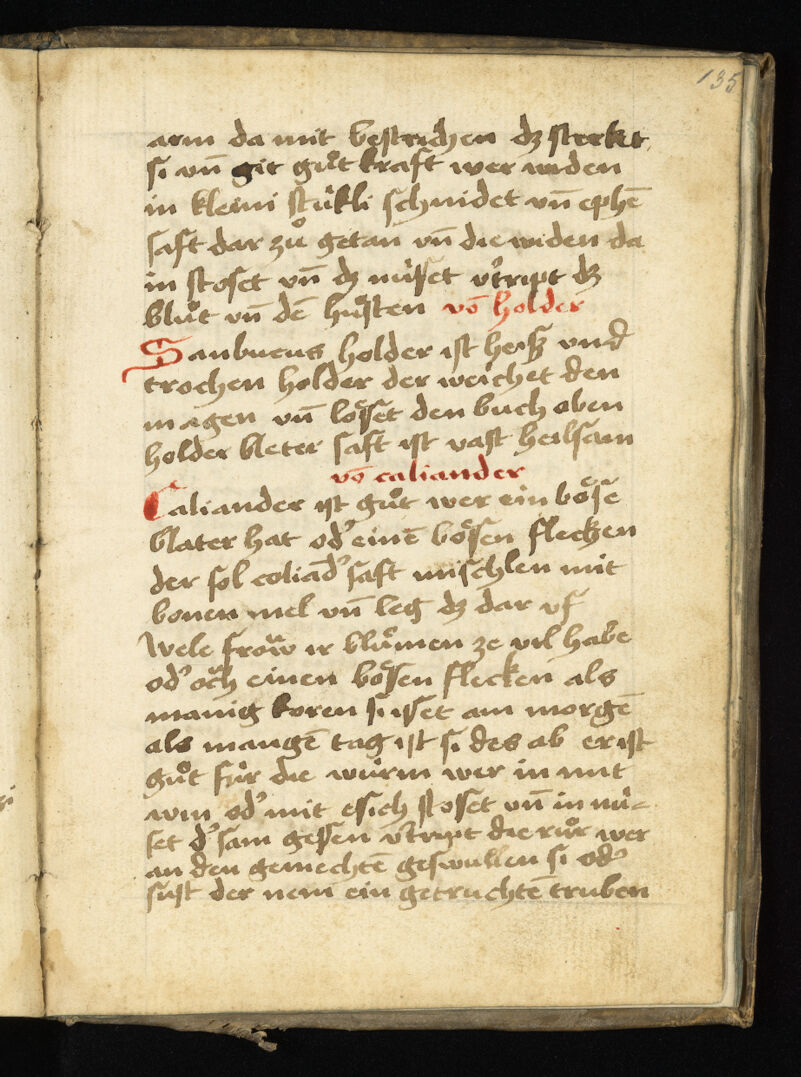 135
arm da mit bestrichen dz sterkt
si vn̄ git gůt kraft wer widen
in kleini stúkli schnidet vn̄ ephē
saft dar zů getan vn̄ die widen da
in stoset vn̄ dz núset v͛tript dz
blůt vn̄ dē hůsten vō holder
Sanbucus holder ist heiß und
trochen holder der weichet den
magen vn̄ löset den buch oben
holder bleter saft ist vast heilsam
vō caliander
Caliander ist gůt wer ein böse
blater hat od͛ einē bösen flecken
der sol coliād͛ saft mischlen mit
bonen mel vn̄ leg dz dar vf
Wele frow ir blůmen ze vil habe
od͛ och einen bösen flecken als
manig koren si isset am morgē
als mangē tag ist si des ab er ist
gůt fúr die wúrm wer in mit
win od͛ mit esich stoset vn̄ in nú-
set d͛ sam gessen v͛tript die růr wer
an den gemechtē geswullen si od͛
sust der nem ein getruchtē truben